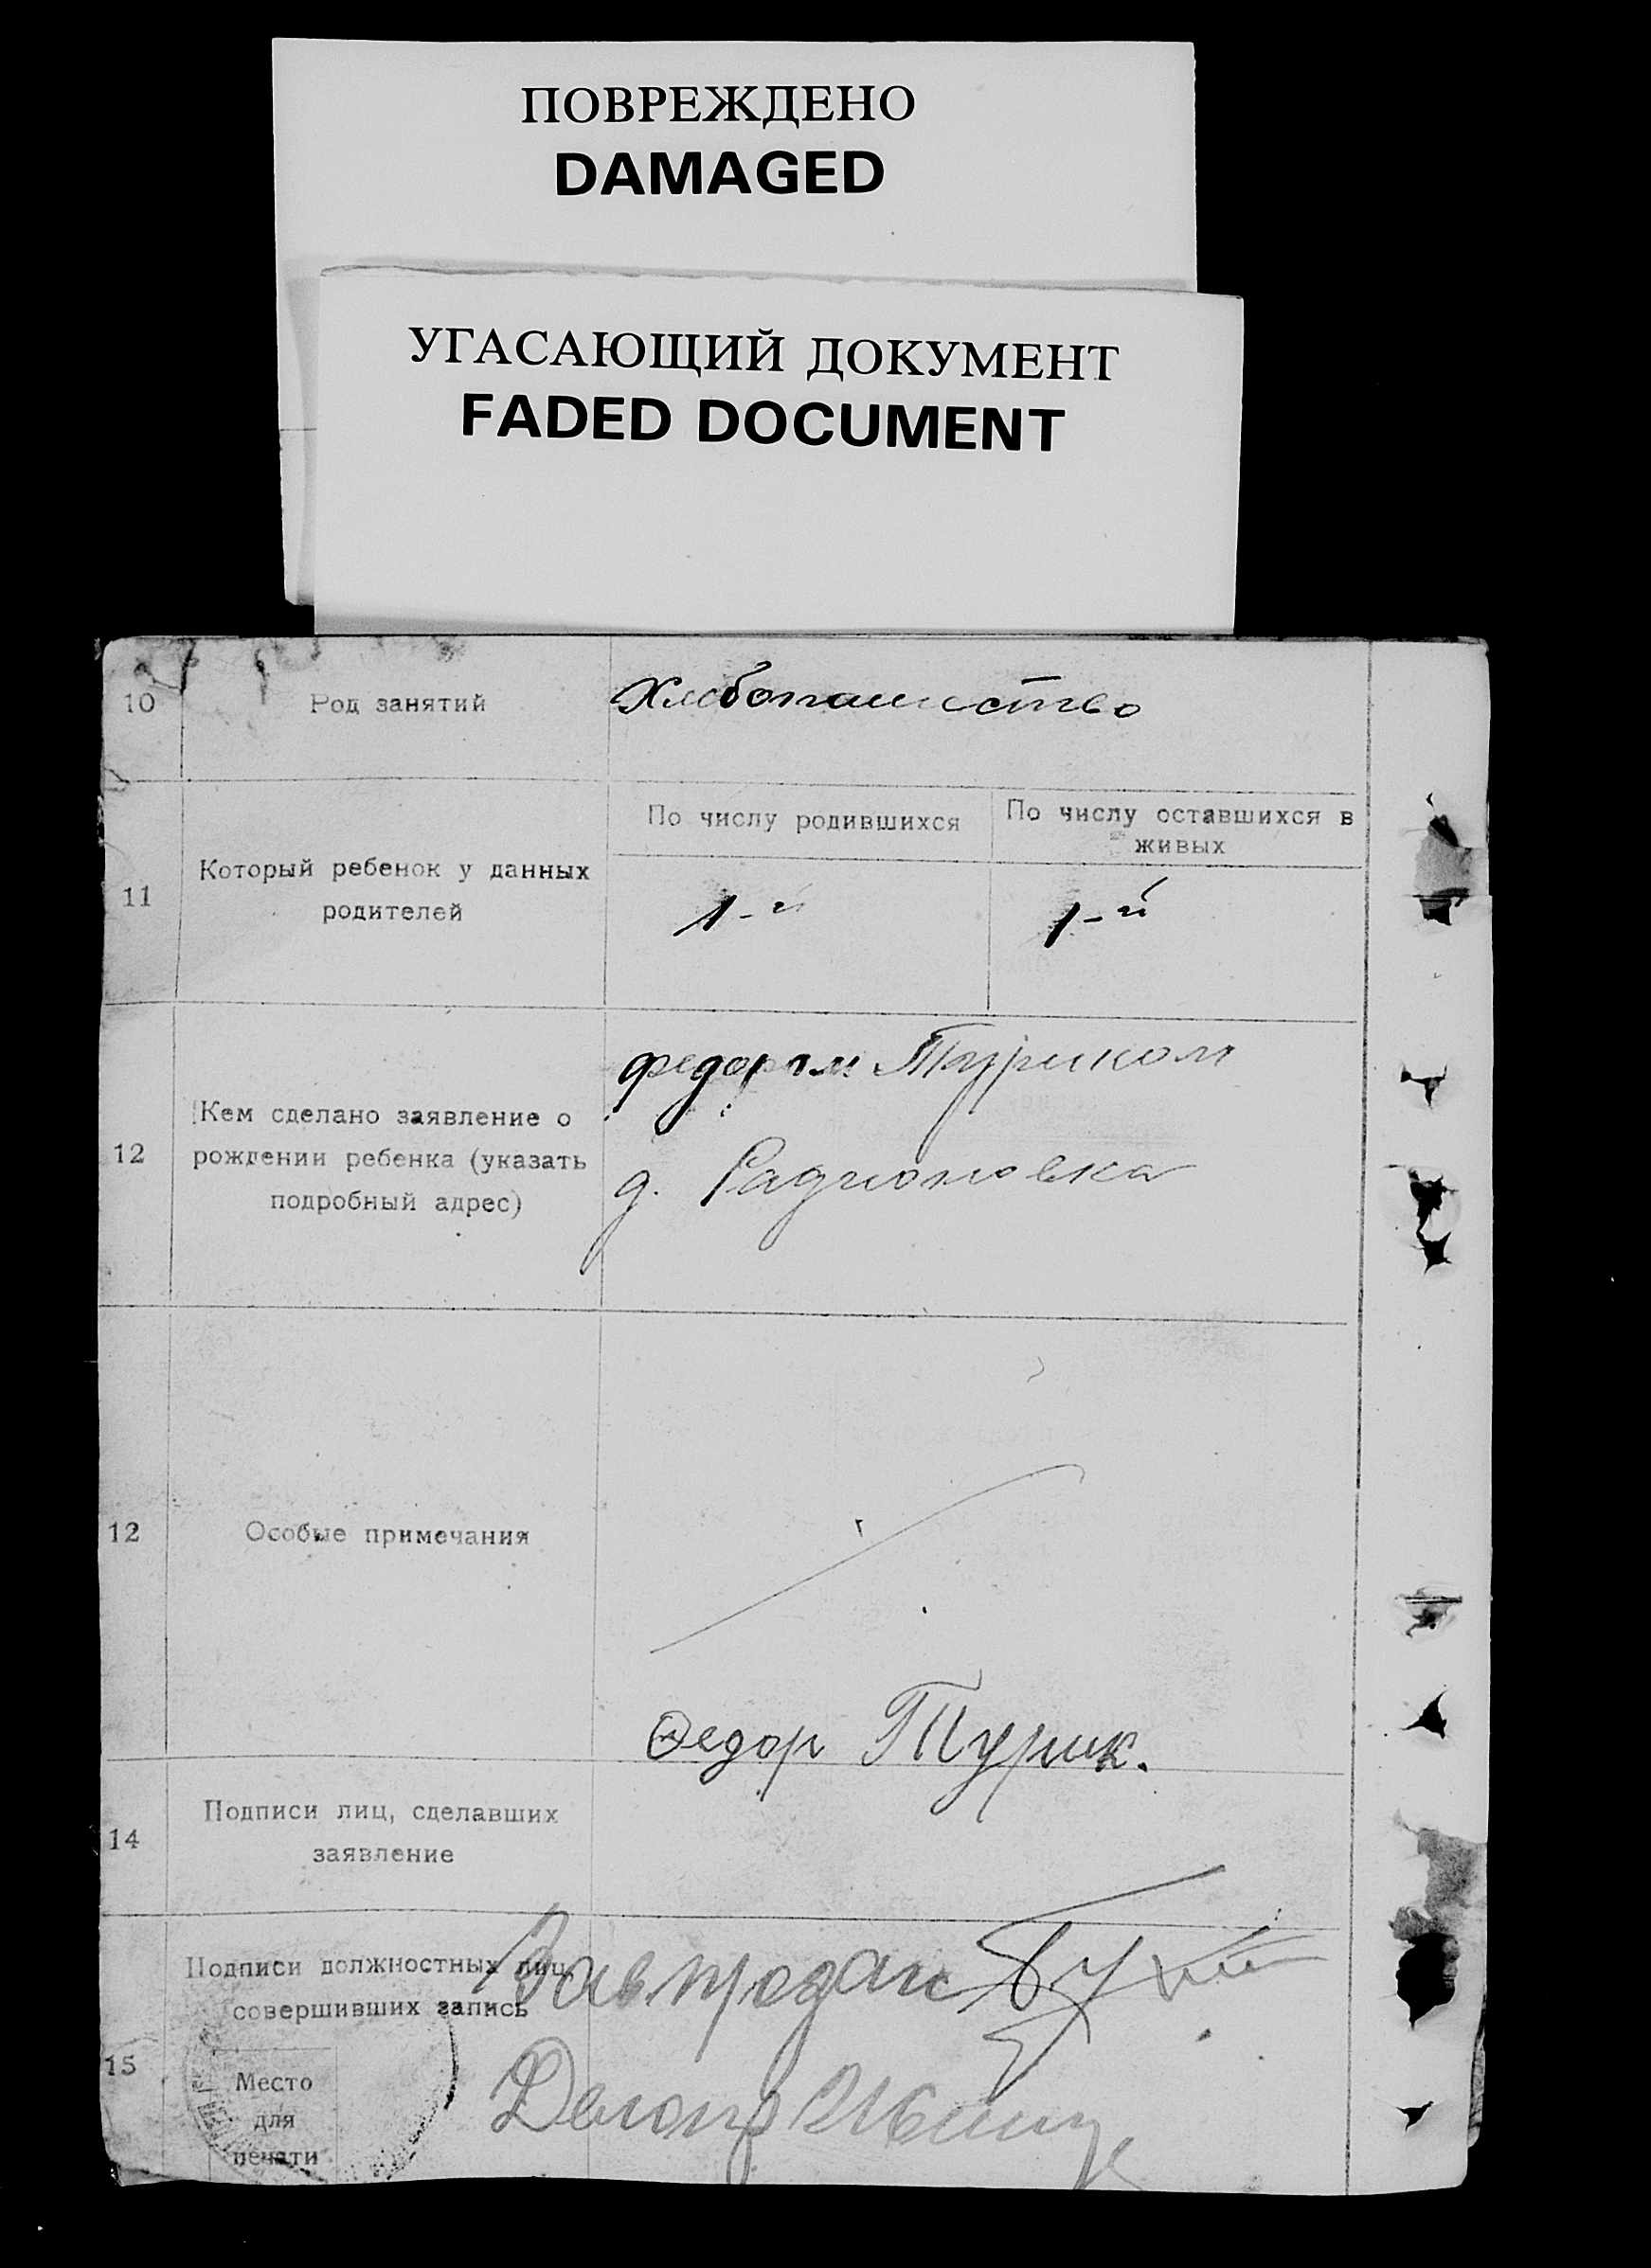 ПОВРЕЖДЕНО
DAMAGED
УГАСАЮЩИЙ ДОКУМЕНТ
FADED DOCUMENT
10 Род занятий Хлебопашество
По числу родившихся По числу оставшихся в
живых
11 Который ребенок у данных
родителей 1-й 1-й
12 Кем сделано заявление о
рождении ребенка (указать
подробный адрес)
Федором Туриком
д. Радионовка
12 Особые примечания
Федор Турик.
14 Подписи лиц, сделавших
заявление
15 Подписи должностных лиц
совершивших запись
Завподан
Делопр
Место
для
печати